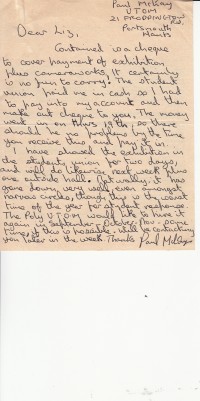 Paul McKay
UTOM
Portsmouth
Hants
Dear Liz,
Contained is a cheque
to cover payment of exhibition
plus camerawork, it certainly
is no fun to carry! The student
union paid me in cash so I had
to pay into my account and then
make out cheque to you. The money
went in on thurs 19th, so there
should be no problems by the time
you receive this and pay it in.
I have showed the exhibition in
the students union for two days,
and will do likewise next week plus
one outside hall. But really, it has
gone down very well even amongst
narrow circles, though this is the worst
time of the year for student response.
The Poly UTOM would like to hire it
again in september - October - Nov. some
time, if this is possible. Will be contacting
you later in the week. Thanks Paul